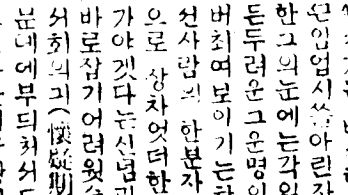 임업시 쓸아린
한 그의눈에는각
든두려운그운명
버최여보이기는
선사람의 한분자
으로 상차엇더한
가야겟다는신념
바로잡기어려웟
서회의긔(懷疑期
분네에부듸처서